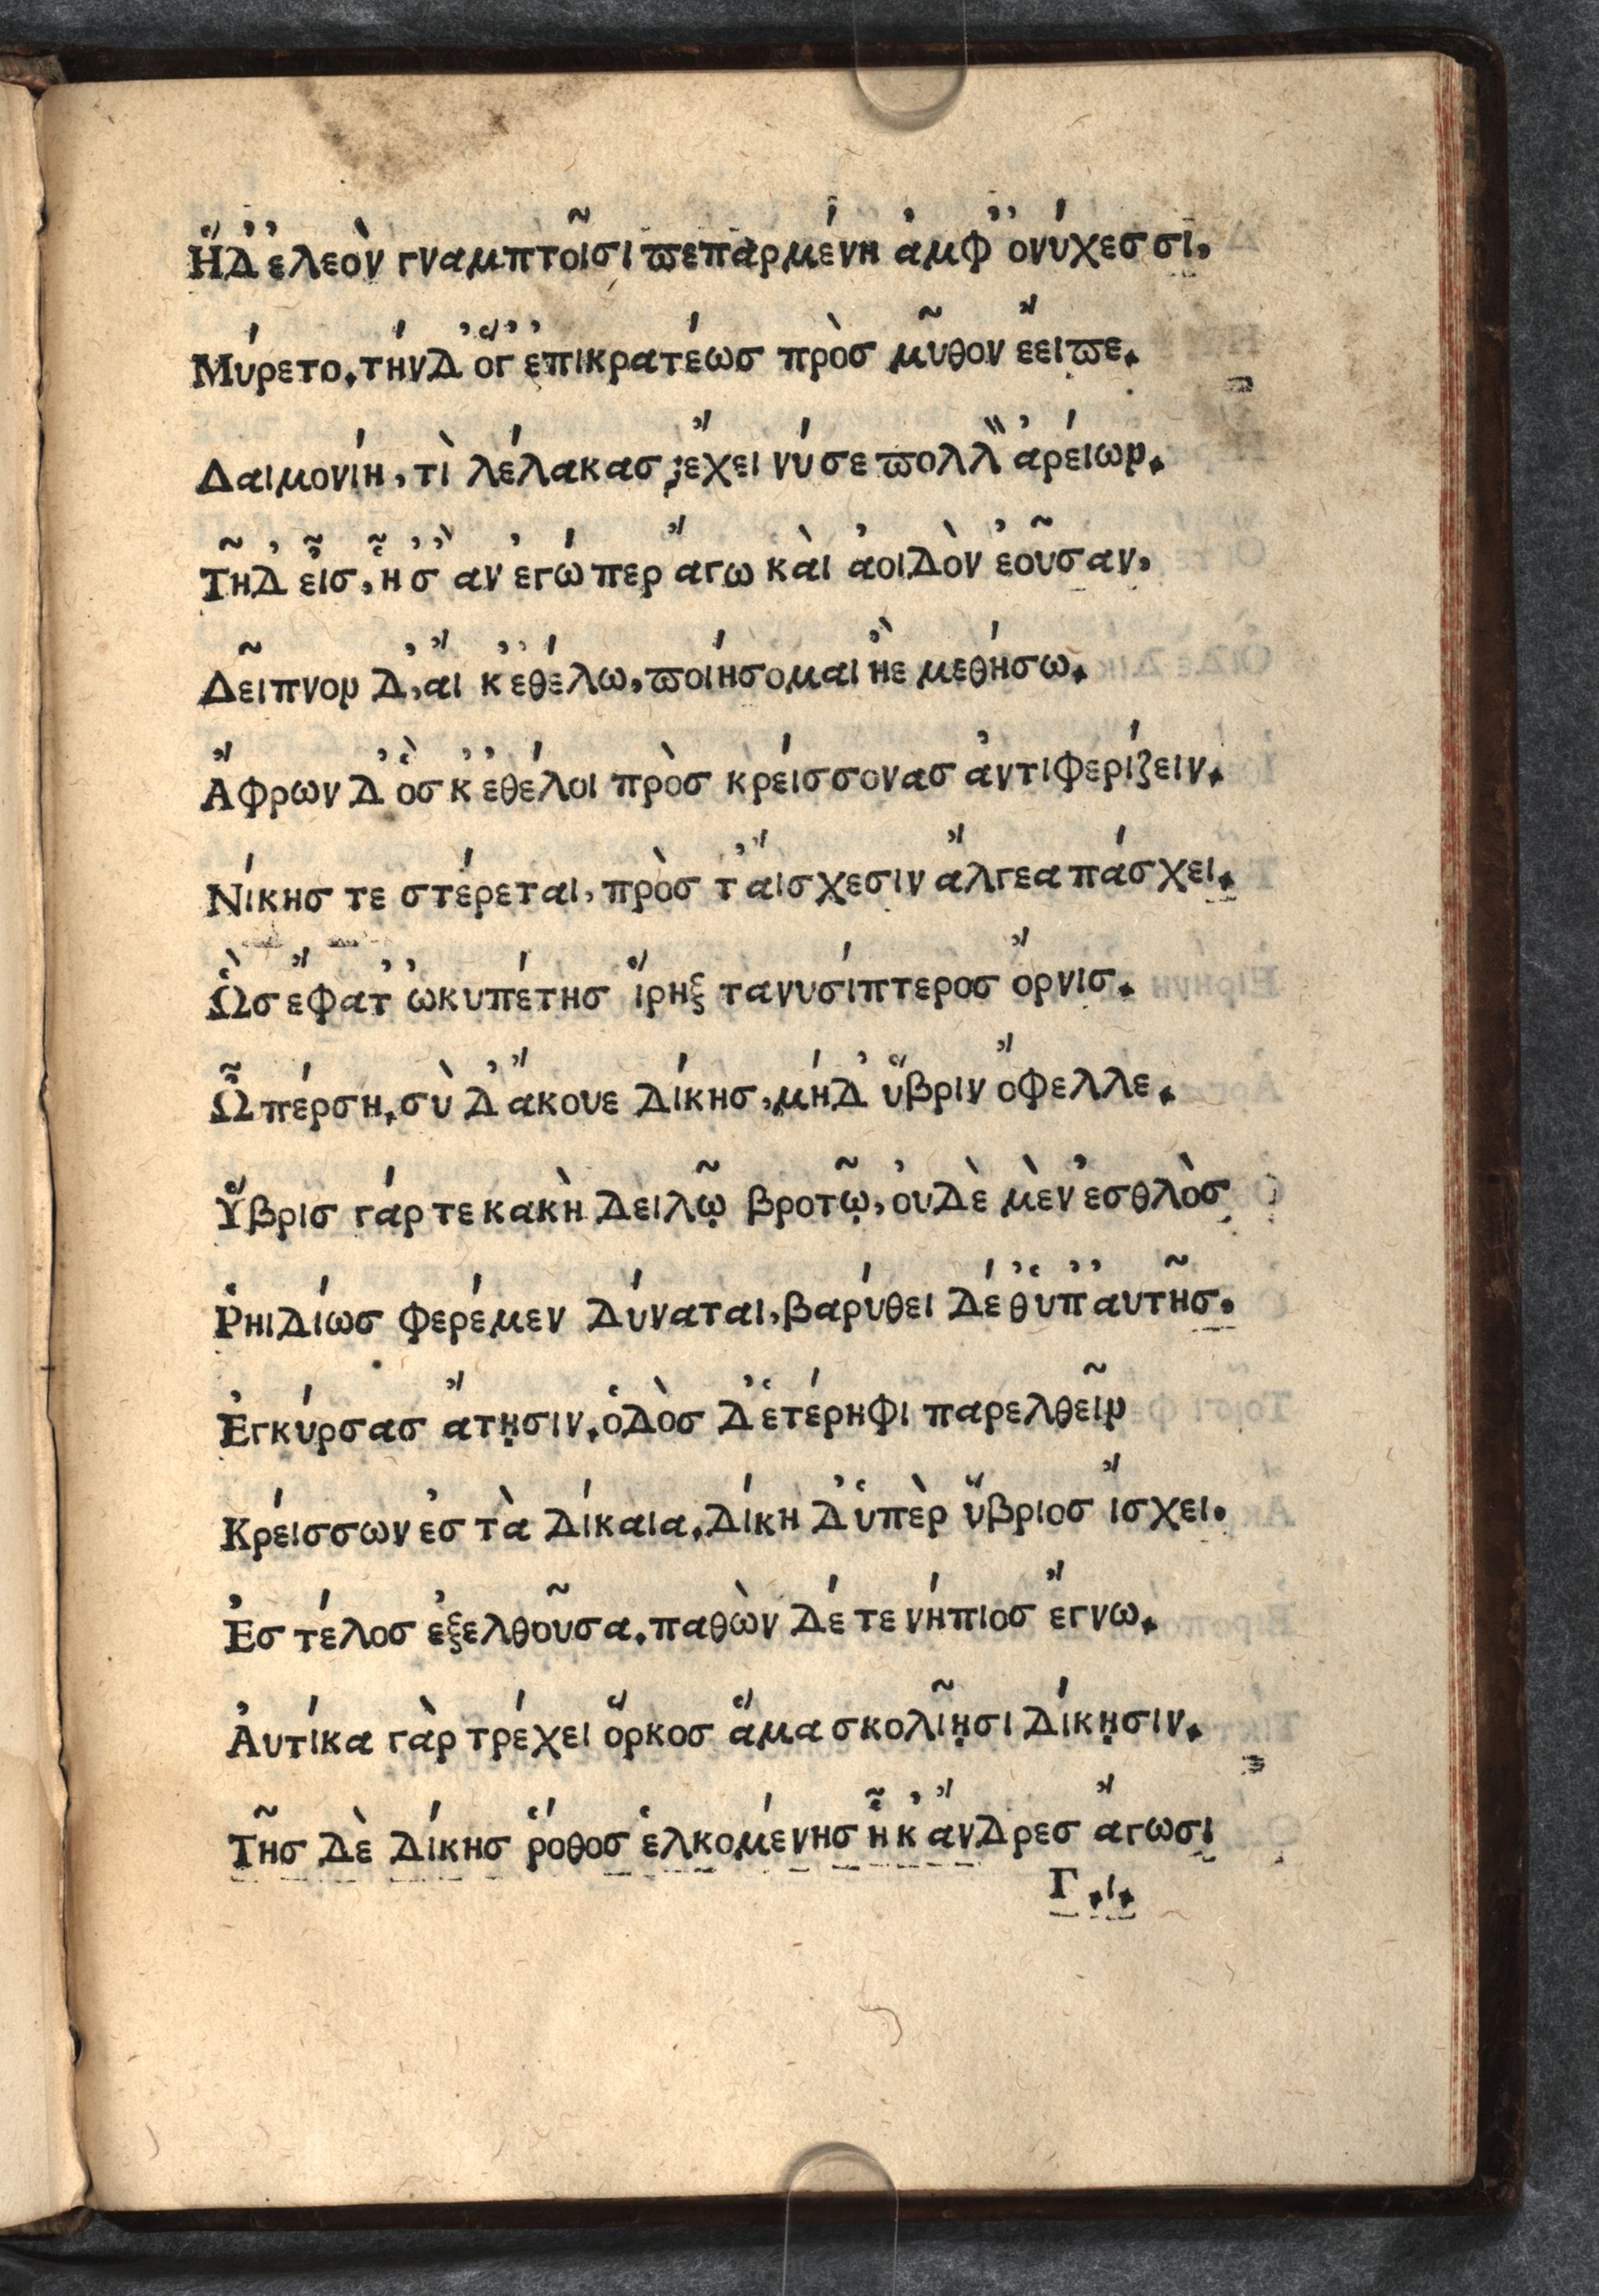 Ἥδ ἐλεὸν γναμπτοῖσι πεπαρμένη ἀμφ ὀνύχεσσι,
Μύρετο. τήνδ ὅγ ἐπικρατέως πρὸς μῦθον ἔειπε.
Δαιμονίη, τὶ λέλακας; ἔχει νύ σε πολλὸν ἀρείων.
Τῆδ εἶς, ᾗ σ ἂν ἐγώ περ ἄγω καὶ ἀοιδὸν ἐοῦσαν,
Δεῖπνον δ, αἴ κ ἐθέλω, ποιήσομαι ἢε μεθήσω.
Ἄφρων δ ὃς κ ἐθέλοι πρὸς κρείσσονας ἀντιφερίζειν.
Νίκης τε στέρεται, πρὸς τ αἴσχεσιν ἄλγεα πάσχει.
Ὣς ἔφατ ὠκυπέτης ἵρηξ τανυσίπτερος ὄρνις.
Ὦ πέρση, σὺ δ ἄκουε δίκης, μήδ ὕβριν ὄφελλε.
Ὕβρις γάρ τε κακὴ δειλῷ βροτῷ, ὀυδὲ μὲν ἐσθλὸς
Ῥηιδίως φερέμεν δύναται, βαρύθει δέ θ ὑπ ἀυτῆς.
Ἐγκύρσας ἄτῃσιν. ὁδὸς δ ἑτέρηφι παρελθεῖν
Κρείσσων ἐς τὰ δίκαια. δίκη δ ὑπὲρ ὕβριος ἴσχει.
Ἐς τέλος ἐξελθοῦσα. παθὼν δέ τε νήπιος ἔγνω.
Ἀυτίκα γὰρ τρέχει ὅρκος ἅμα σκολιῇσι δίκῃσιν.
Τῆς δὲ δίκης ῥόθος ἑλκομένης ᾗ κ ἄνδρες ἄγωσι
Γ.ι.